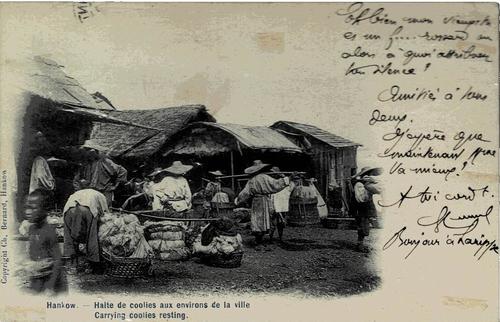 Eh bien mon vieux
es un f... rossard ou
alors à quoi attribuer
ton silence ?
Amitié à tous
deux.
J'espère que
maintenant
va mieux !
A toi
Bonjour à
Copyright Ch. Bernard, Hankow
Hankow. — Halte de coolies aux environs de la ville
Carrying coolies resting.